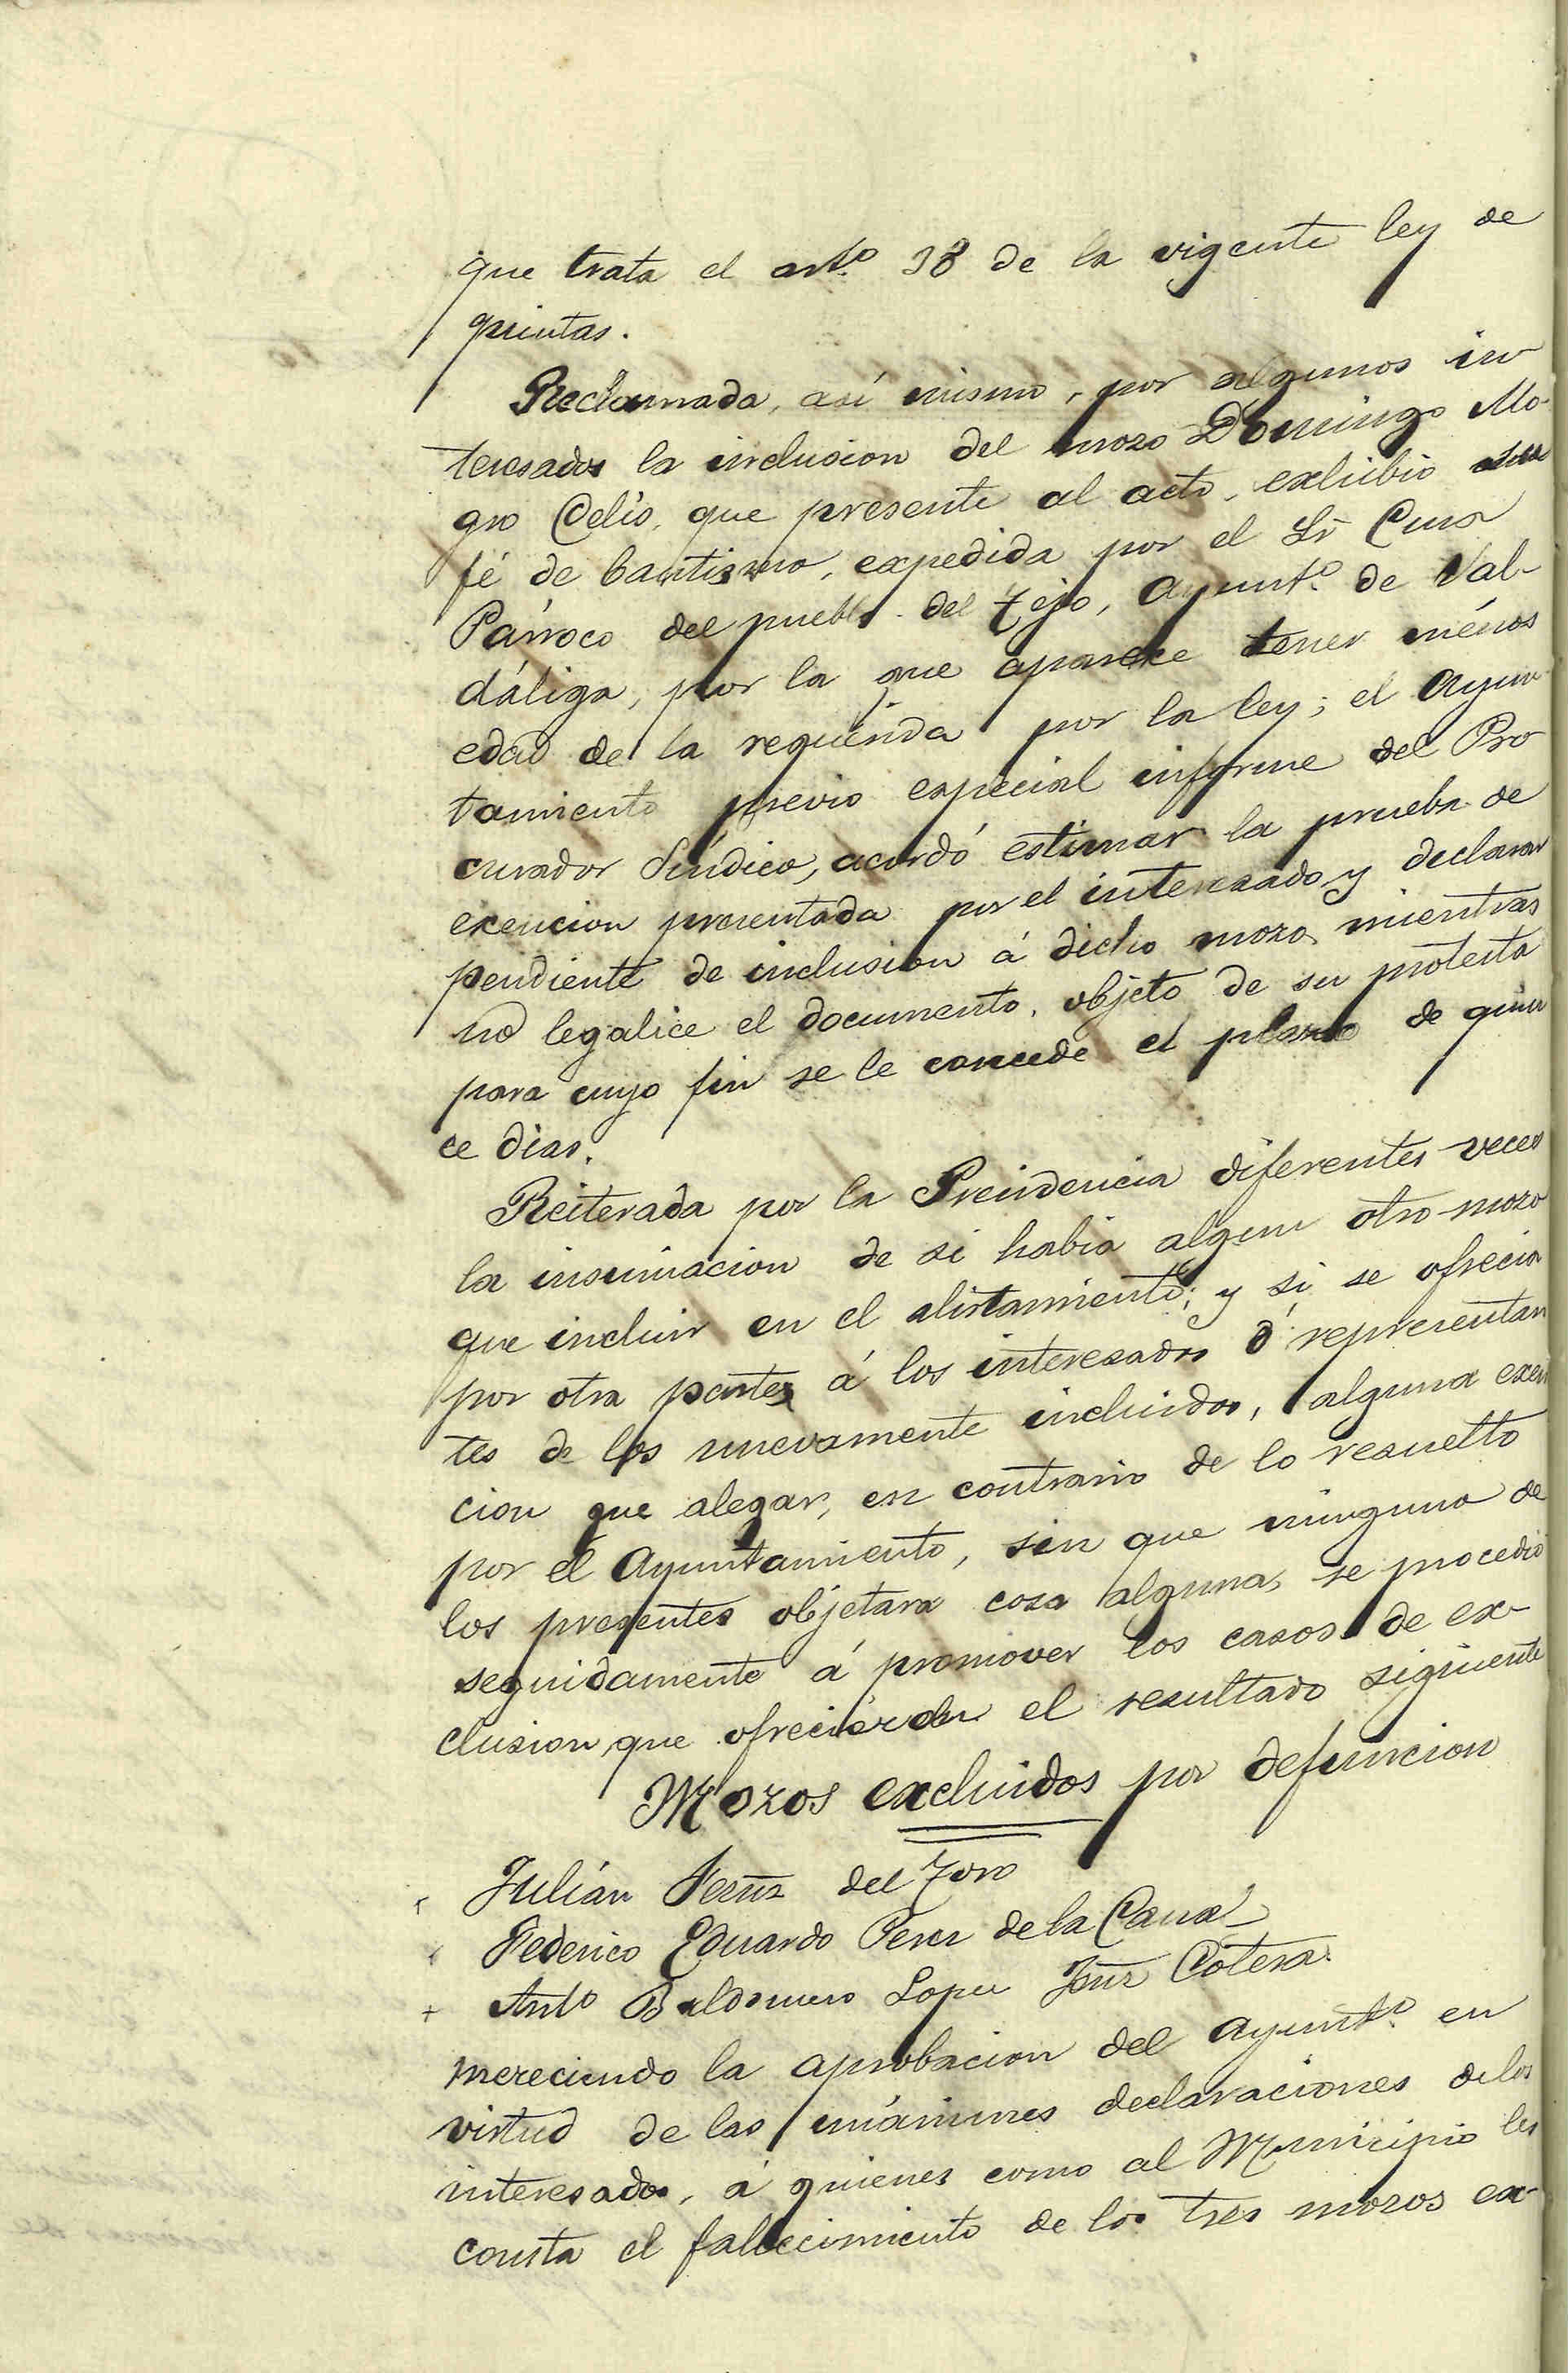 que trata el art.º 38 de la vigente ley de
quintas.
Reclamada, así mismo, por algunos in
teresados la inclusion del mozo Domingo Mo-
gro Celis, que presente al acto, exhibió
fé de bautismo, expedida por el Sr Cura
Párroco del pueblo del Tejo, Ayunt.º de Val-
dáliga, por la que aparece tener ménos
edad de la requerida por la ley; el Ayun-
tamiento previo especial informe del Pro
curador Síndico, acordó estimar la prueba de
exencion presentada por el interesado y declarar
pendiente de inclusion á dicho mozo, mientras
no legalice el documento, objeto de su protesta
para cuyo fin se le concede el plazo de quin
ce dias.
Reiterada por la Presidencia diferentes veces
la insinuacion de si habia algun otro mozo
que incluir en el alistamiento; y si se ofrecia
por otra parte, á los interesados ó representan
tes de los nuevamente incluidos, alguna exen
cion que alegar, en contrario de lo resuelto
por el Ayuntamiento, sin que ninguno de
los presentes objetara cosa alguna, se procedió
seguidamente á promover los casos de ex-
clusion, que ofrecieron el resultado siguiente
Mozos excluidos por defuncion
Julián Fernz del Toro
Federico Eduardo Perez de la Canal
+ Ant.º Baldomero Lopez Fernz Cotera.
mereciendo la aprobacion del Ayunt.º en
virtud de las unánimes declaraciones de los
interesados, á quienes como al Municipio les
consta el fallecimiento de los tres mozos ex-